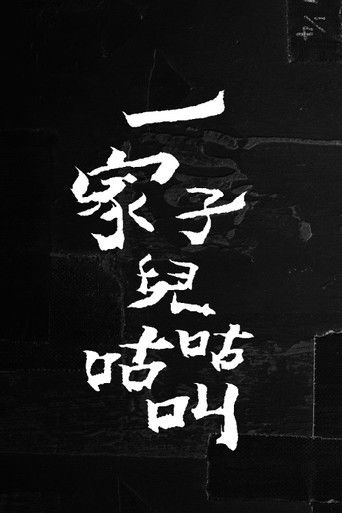 一家子兒咕咕叫